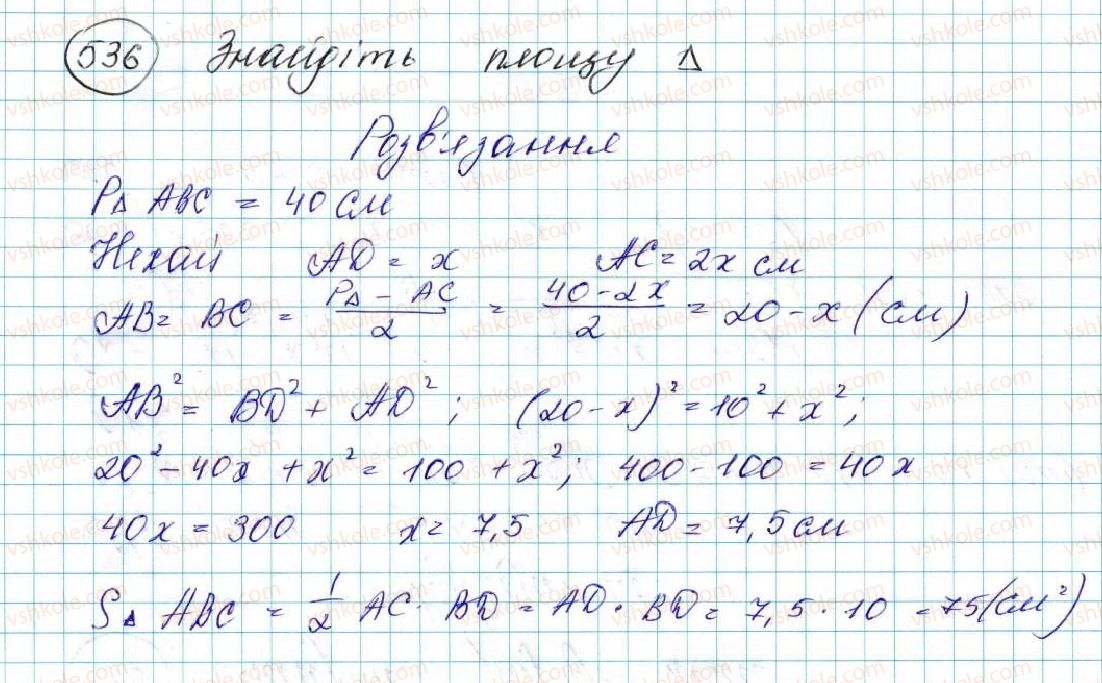 536 Знайдіть площу Δ
Розв'язання
PΔ ABC = 40 см
Нехай AD = x AC = 2x см
AB = BC = (PΔ - AC)/2 = (40 - 2x)/2 = 20 - x (см)
AB² = BD² + AD²; (20 - x)² = 10² + x²;
20² - 40x + x² = 100 + x²; 400 - 100 = 40x
40x = 300 x = 7,5 AD = 7,5 см
SΔ ABC = 1/2 AC · BD = AD · BD = 7,5 · 10 = 75 (см²)